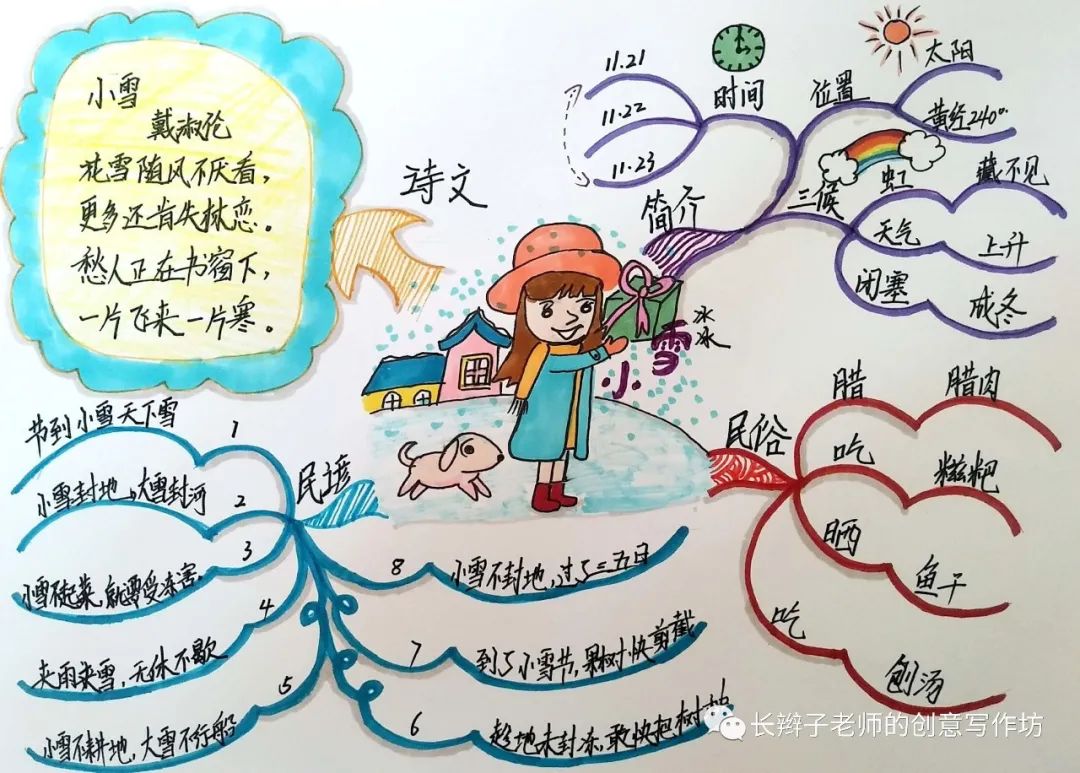 小雪
戴淑伦
花雪随风不厌看，
更多还肯失林恋。
愁人正在书窗下，
一片飞来一片寒。
诗文
小雪
冰
冰
简介
时间
11.21
11.22
11.23
位置
太阳
黄经240°
三候
虹
藏不见
天气
上升
闭塞
成冬
民俗
腊
腊肉
吃
糍粑
晒
鱼干
吃
刨汤
民谚
1
节到小雪天下雪
2
小雪封地，大雪封河
3
小雪不起菜，就要受冻害。
4
夹雨夹雪，无休不歇
5
小雪不耕地，大雪不行船
6
趁地未封冻，敢快把树
7
到了小雪节，果树快剪截
8
小雪不封地，过了三五日
长辫子老师的创意写作坊